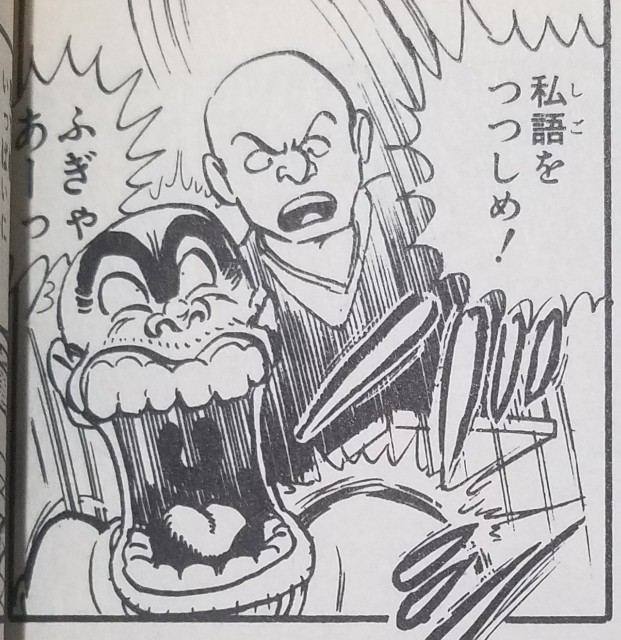 私語を
つつしめ！
ふぎゃ
あーっ
いっぱいに